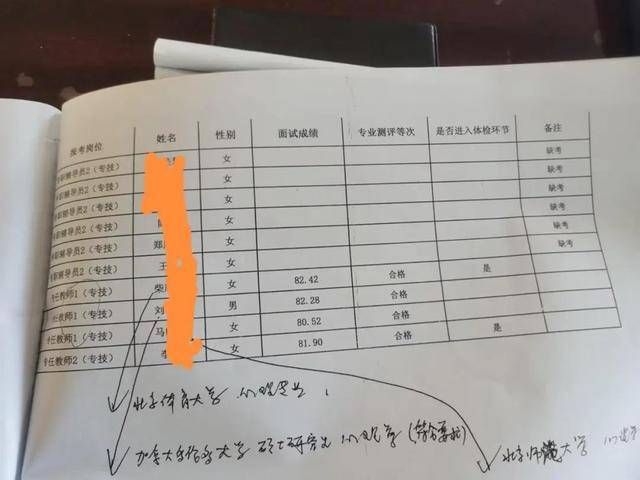 报考岗位 姓名 性别 面试成绩 专业测评等次 是否进入体检环节 备注
辅导员2（专技） 女 缺考
辅导员2（专技） 女 缺考
职辅导员2（专技） 女 缺考
职辅导员2（专技） 女 缺考
职辅导员2（专技） 郑 女 缺考
职辅导员2（专技） 王 女
专任教师1（专技） 柴 女 82.42 合格 是
专任教师1（专技） 刘 男 82.28 合格
专任教师1（专技） 马 女 80.52 合格
专任教师2（专技） 李 女 81.90 合格 是
北京体育大学
加拿大 大学 硕士研究生
北京师范大学